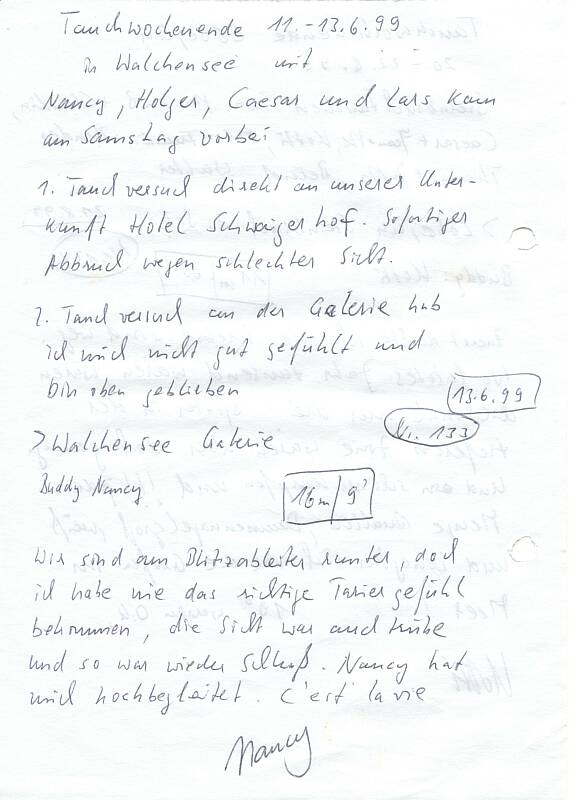 Tauchwochenende 11.-13.6.99
in Walchensee mit
Nancy, Holger, Caesar und Lars kam
am Samstag vorbei
1. Tauchversuch direkt an unserer Unter-
kunft Hotel Schwaigerhof. Sofortiger
Abbruch wegen schlechter Sicht.
2. Tauchversuch an der Galerie hab
ich mich nicht gut gefühlt und
bin oben geblieben
13.6.99
> Walchensee Galerie
Nr. 133
Buddy Nancy
16m/9°
Wir sind am Blitzableiter runter, doch
ich habe nie das richtige Tariergefühl
bekommen, die Sicht war auch trübe
und so war wieder Schluß. Nancy hat
mich hochbegleitet. C'est la vie
Nancy